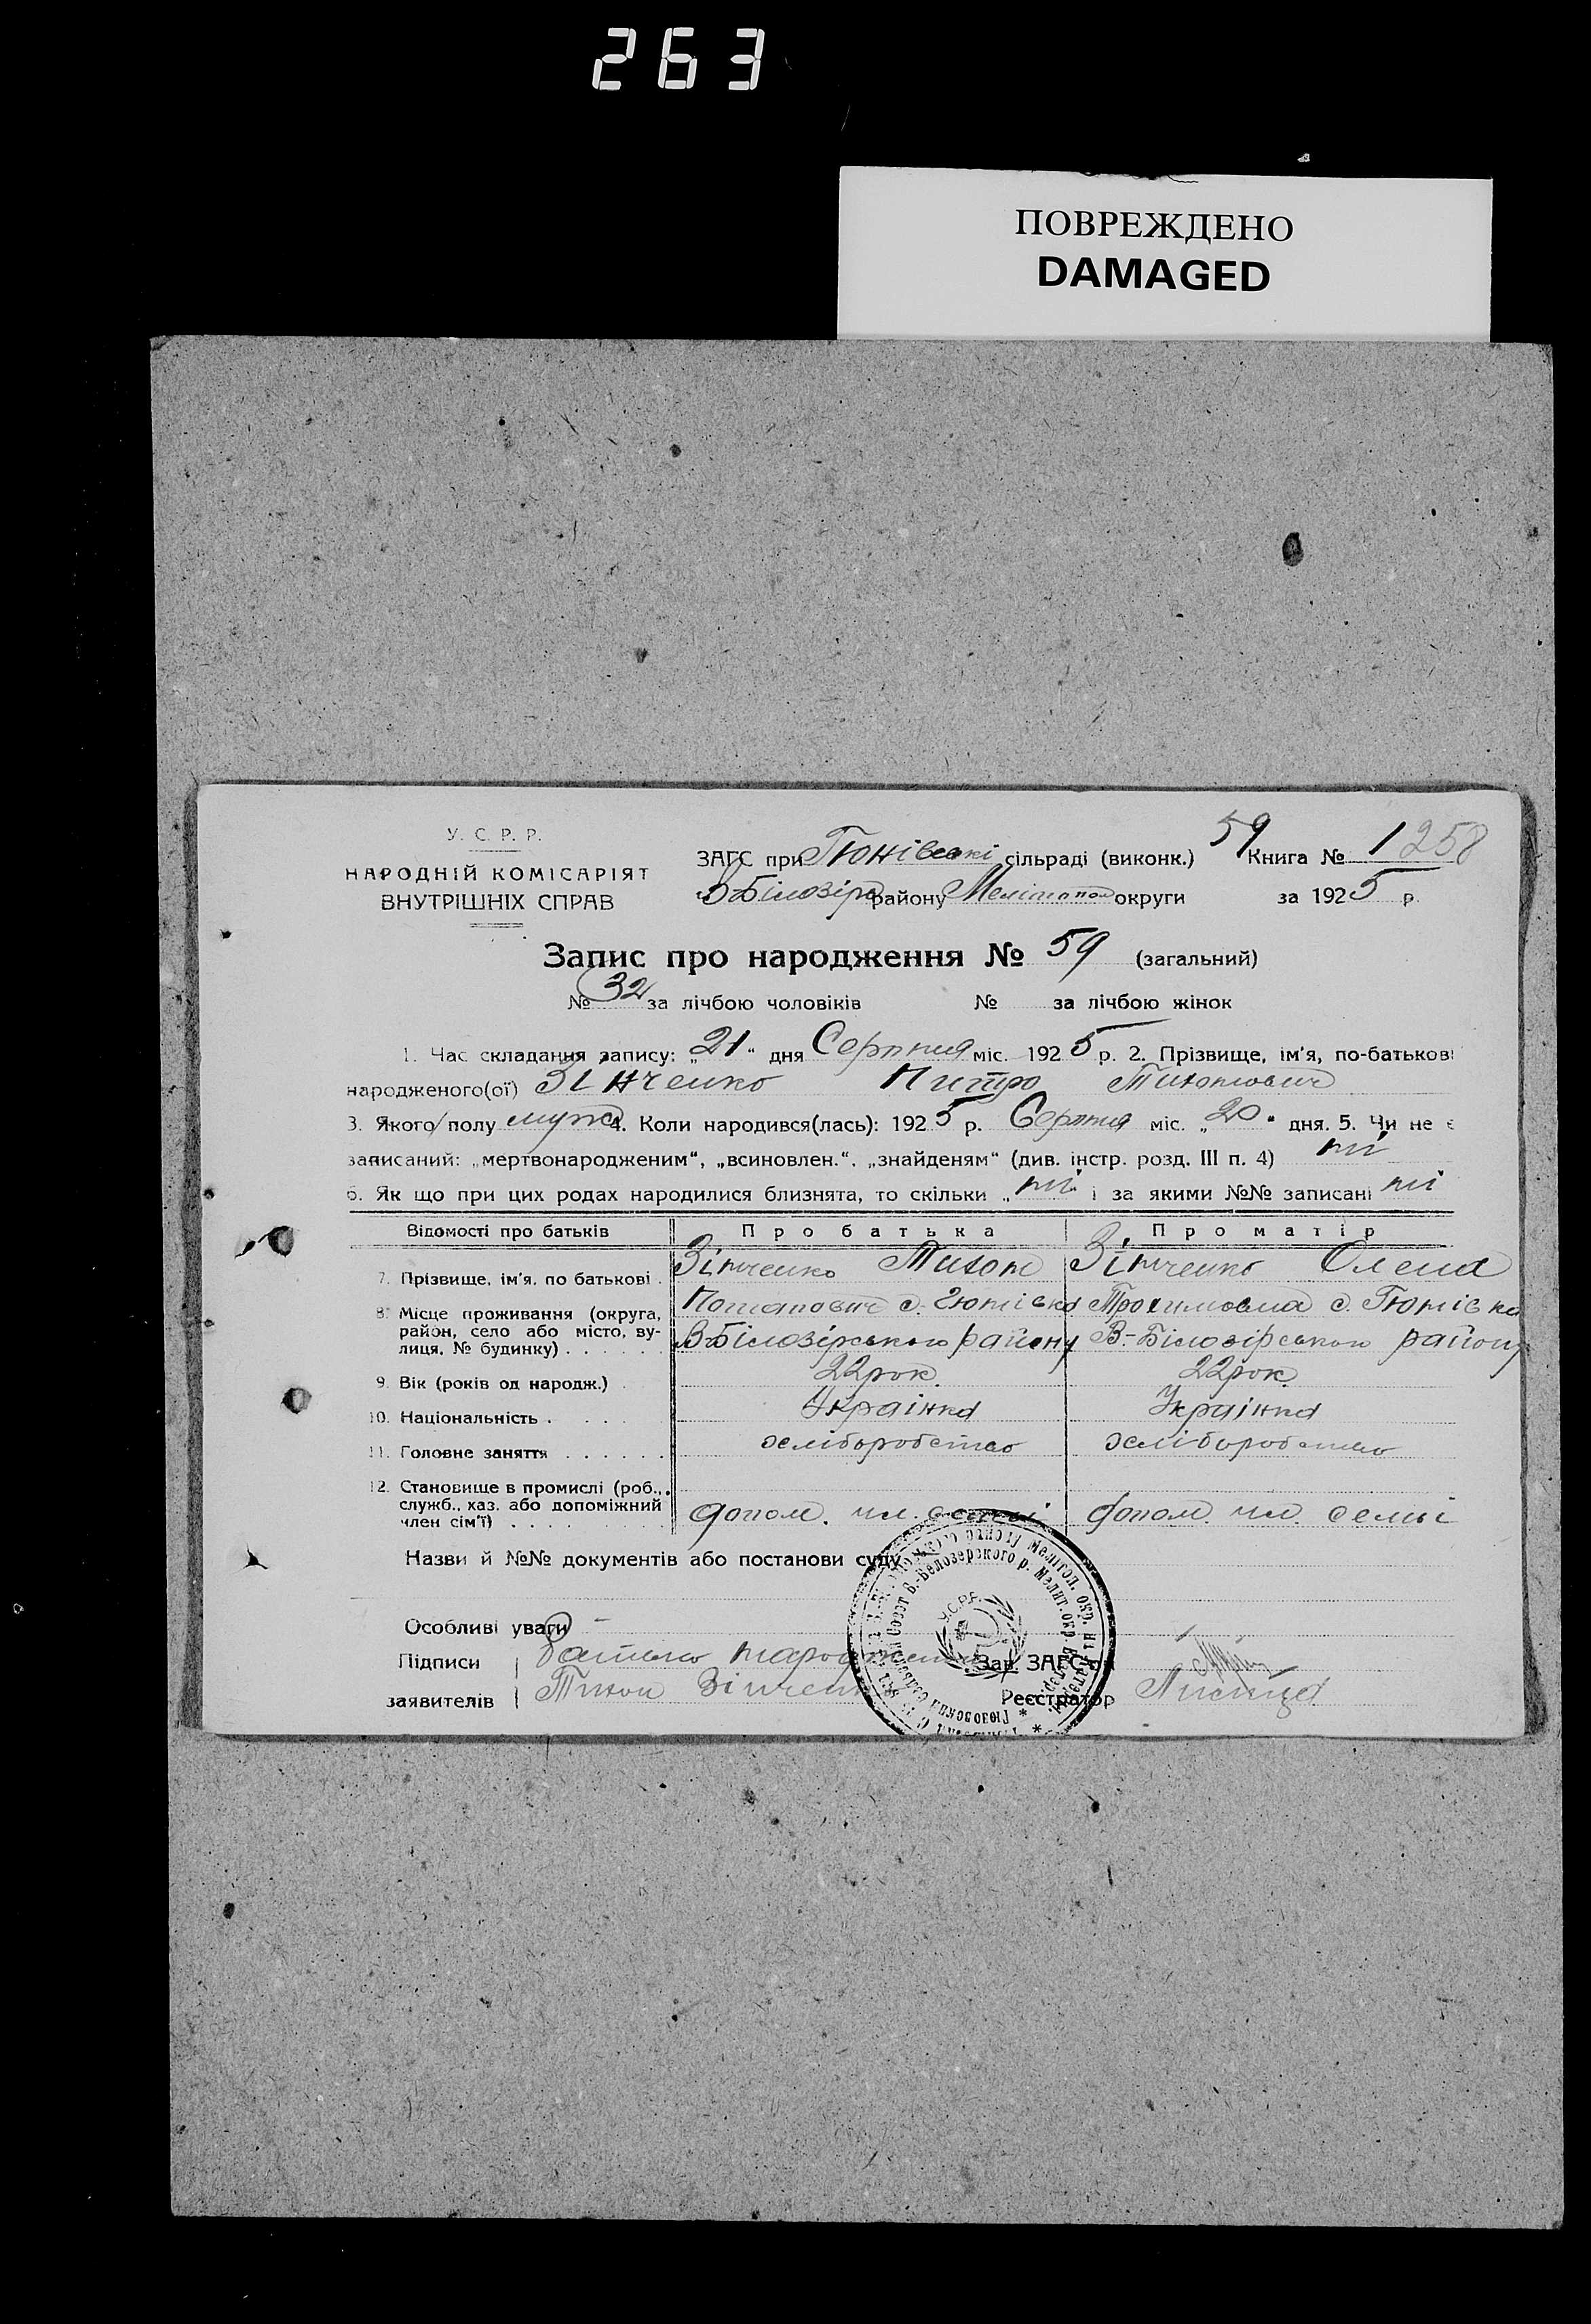 263
ПОВРЕЖДЕНО
DAMAGED
У. С. Р. Р.
НАРОДНІЙ КОМІСАРІЯТ
ВНУТРІШНІХ СПРАВ
59
ЗАГС при Гюнівські сільраді (виконк.) Книга № 1 258
В-Білозір району Мелітопол округи за 1925 р.
Запис про народження № 59 (загальний)
№ 32 за лічбою чоловіків № за лічбою жінок
1. Час складання запису: „21“ дня Серпня міс. 1925 р. 2. Прізвище, ім'я, по-батькові
народженого(ої) Зінченко Тихонович
3. Якого полу муж 4. Коли народився(лась): 1925 р. Серпня міс. „20“ дня. 5. Чи не є
записаний: „мертвонародженим“, „всиновлен.“, „знайденям“ (див. інстр. розд. III п. 4) ні
6. Як що при цих родах народилися близнята, то скільки „ні“ і за якими №№ записані ні
Відомості про батьків Про батька Про матір
7. Прізвище, ім'я, по батькові . Зінченко Тихон Зінченко Олена
8. Місце проживання (округа, район, село або місто, вулиця, № будинку) . . . . . Потапович с. Гюнівка Трохимовна с. Гюнівка
В-Білозірського району В.-Білозірського району
9. Вік (років од народж.) 22 рок. 22 рок.
10. Національність . . . . Українка Українка
11. Головне заняття . . . . . . хліборобство хліборобство
12. Становище в промислі (роб.,
служб., хаз. або допоміжний
член сім'ї) . . . . допом. чл. семьі допом. чл. семьі
Назви й №№ документів або постанови суду
Особливі уваги —
Підписи батько Зав. ЗАГС'ом
заявителів Тихон Зінченко Реєстратор Лисиця
У.С.Р.Р.